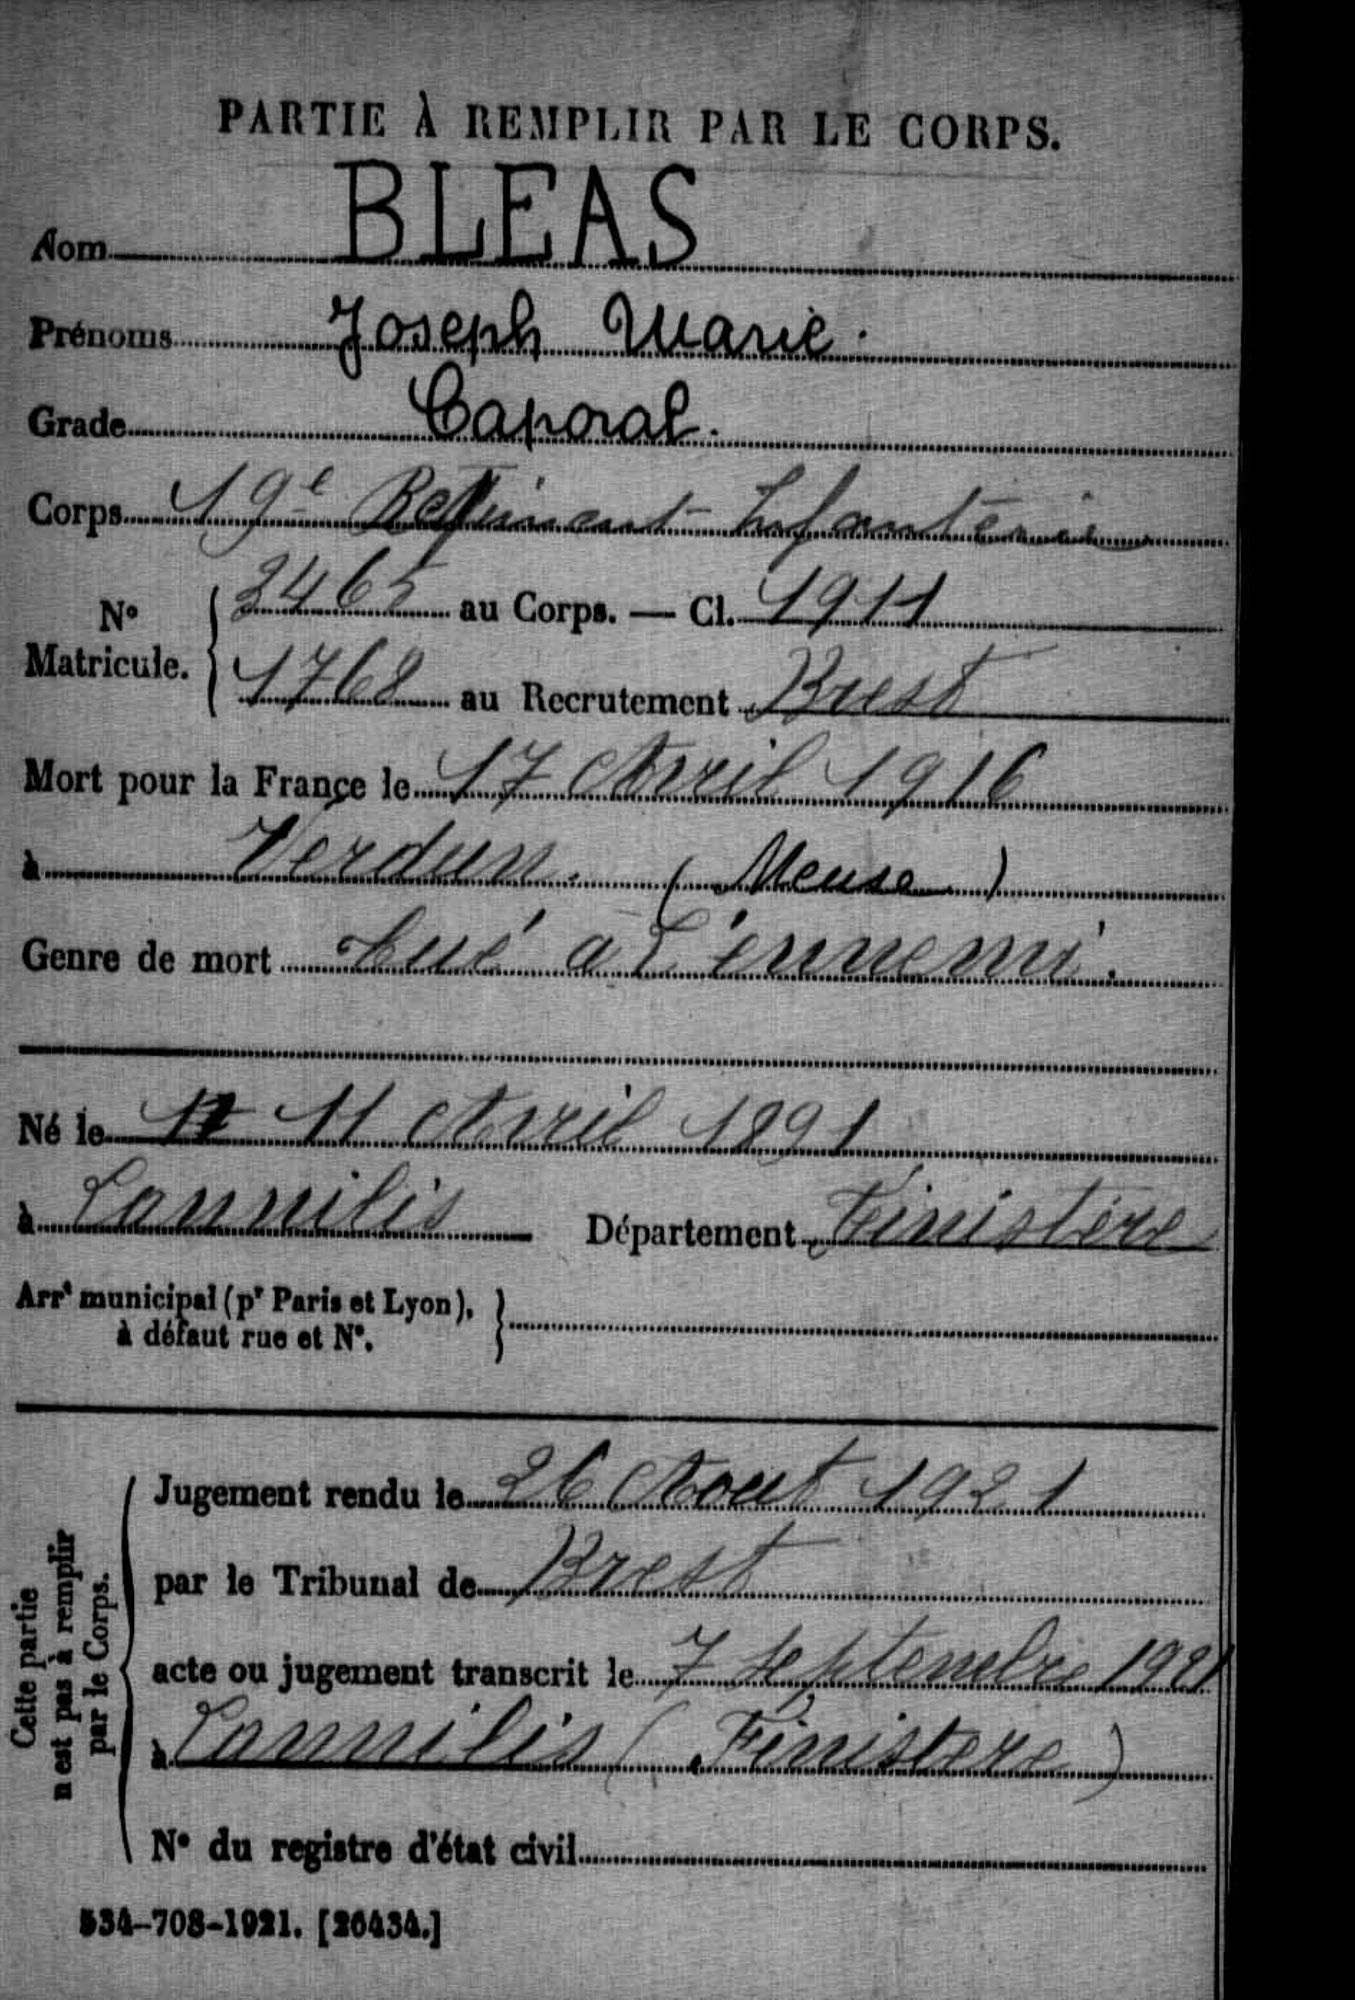 PARTIE À REMPLIR PAR LE CORPS.
Nom BLEAS
Prénoms Joseph Marie.
Grade Caporal.
Corps 19e Regiment Infanterie
N° Matricule. { 3465 au Corps. — Cl. 1911
1768 au Recrutement Brest
Mort pour la France le 17 Avril 1916
à Verdun. (Meuse)
Genre de mort tué à l'ennemi.
Né le 11 Avril 1891
à Lannilis Département Finistère
Arrt municipal (pr Paris et Lyon),
à défaut rue et N°.
Cette partie
n'est pas à remplir
par le Corps.
Jugement rendu le 26 Aout 1921
par le Tribunal de Brest
acte ou jugement transcrit le 7 Septembre 1921
à Lannilis (Finistere)
N° du registre d'état civil
534-708-1921. [26434.]